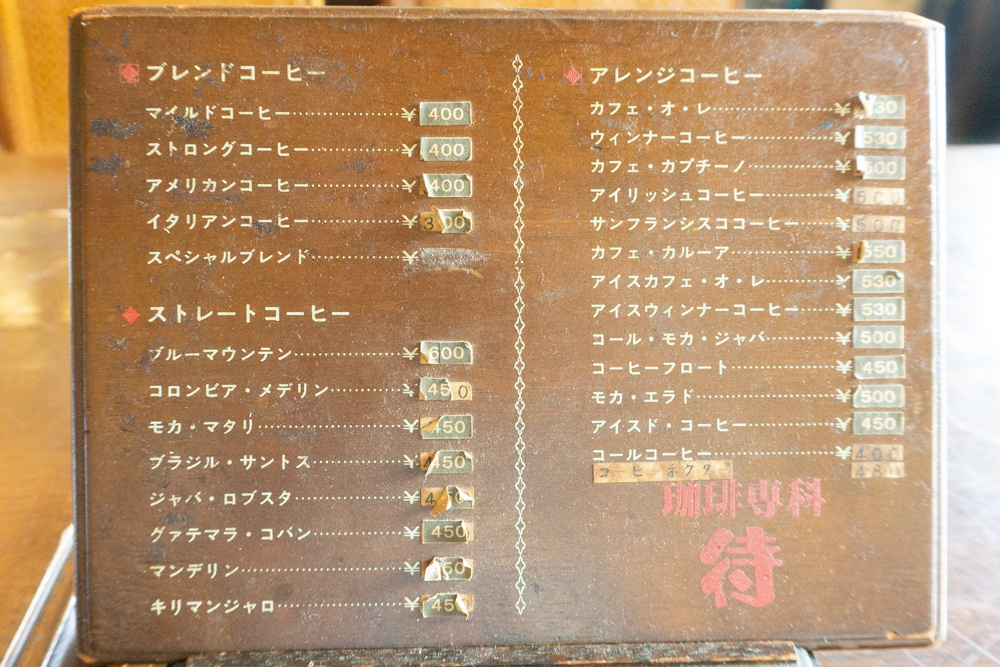 ブレンドコーヒー
マイルドコーヒー ¥ 400
ストロングコーヒー ¥ 400
アメリカンコーヒー ¥ 400
イタリアンコーヒー ¥ 300
スペシャルブレンド ¥
ストレートコーヒー
ブルーマウンテン ¥ 600
コロンビア・メデリン ¥ 450
モカ・マタリ ¥ 450
ブラジル・サントス ¥ 450
ジャバ・ロブスタ ¥
グァテマラ・コバン ¥ 450
マンデリン ¥
キリマンジャロ ¥ 450
アレンジコーヒー
カフェ・オ・レ ¥
ウィンナーコーヒー ¥ 530
カフェ・カプチーノ ¥ 500
アイリッシュコーヒー ¥ 500
サンフランシスココーヒー ¥ 500
カフェ・カルーア ¥ 550
アイスカフェ・オ・レ ¥ 530
アイスウィンナーコーヒー ¥ 530
コール・モカ・ジャバ ¥ 500
コーヒーフロート ¥ 450
モカ・エラド ¥ 500
アイスド・コーヒー ¥ 450
コールコーヒー ¥ 400
コーヒーネクター 480
珈琲専科
待